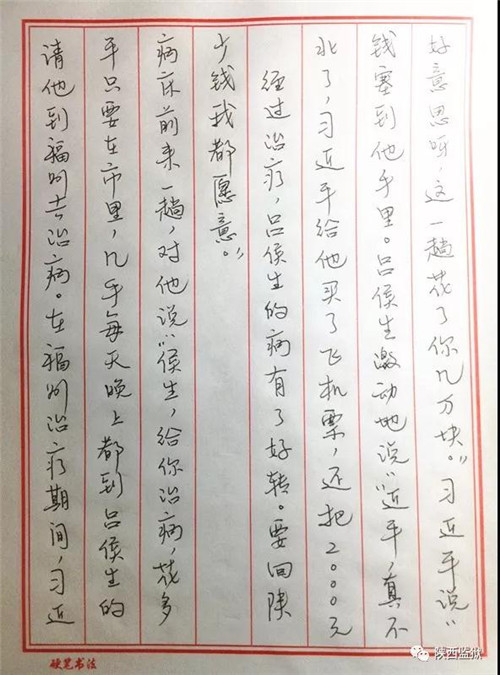 请他到福州去治病。在福州治疗期间，习近
平只要在市里，几乎每天晚上都到吕侯生的
病床前来一趟，对他说：“侯生，给你治病，花多
少钱我都愿意。”
经过治疗，吕侯生的病有了好转。要回陕
北了，习近平给他买了飞机票，还把2000元
钱塞到他手里。吕侯生激动地说：“近平，真不
好意思呀，这一趟花了你几万块。”习近平说：“
硬笔书法
陕西监狱